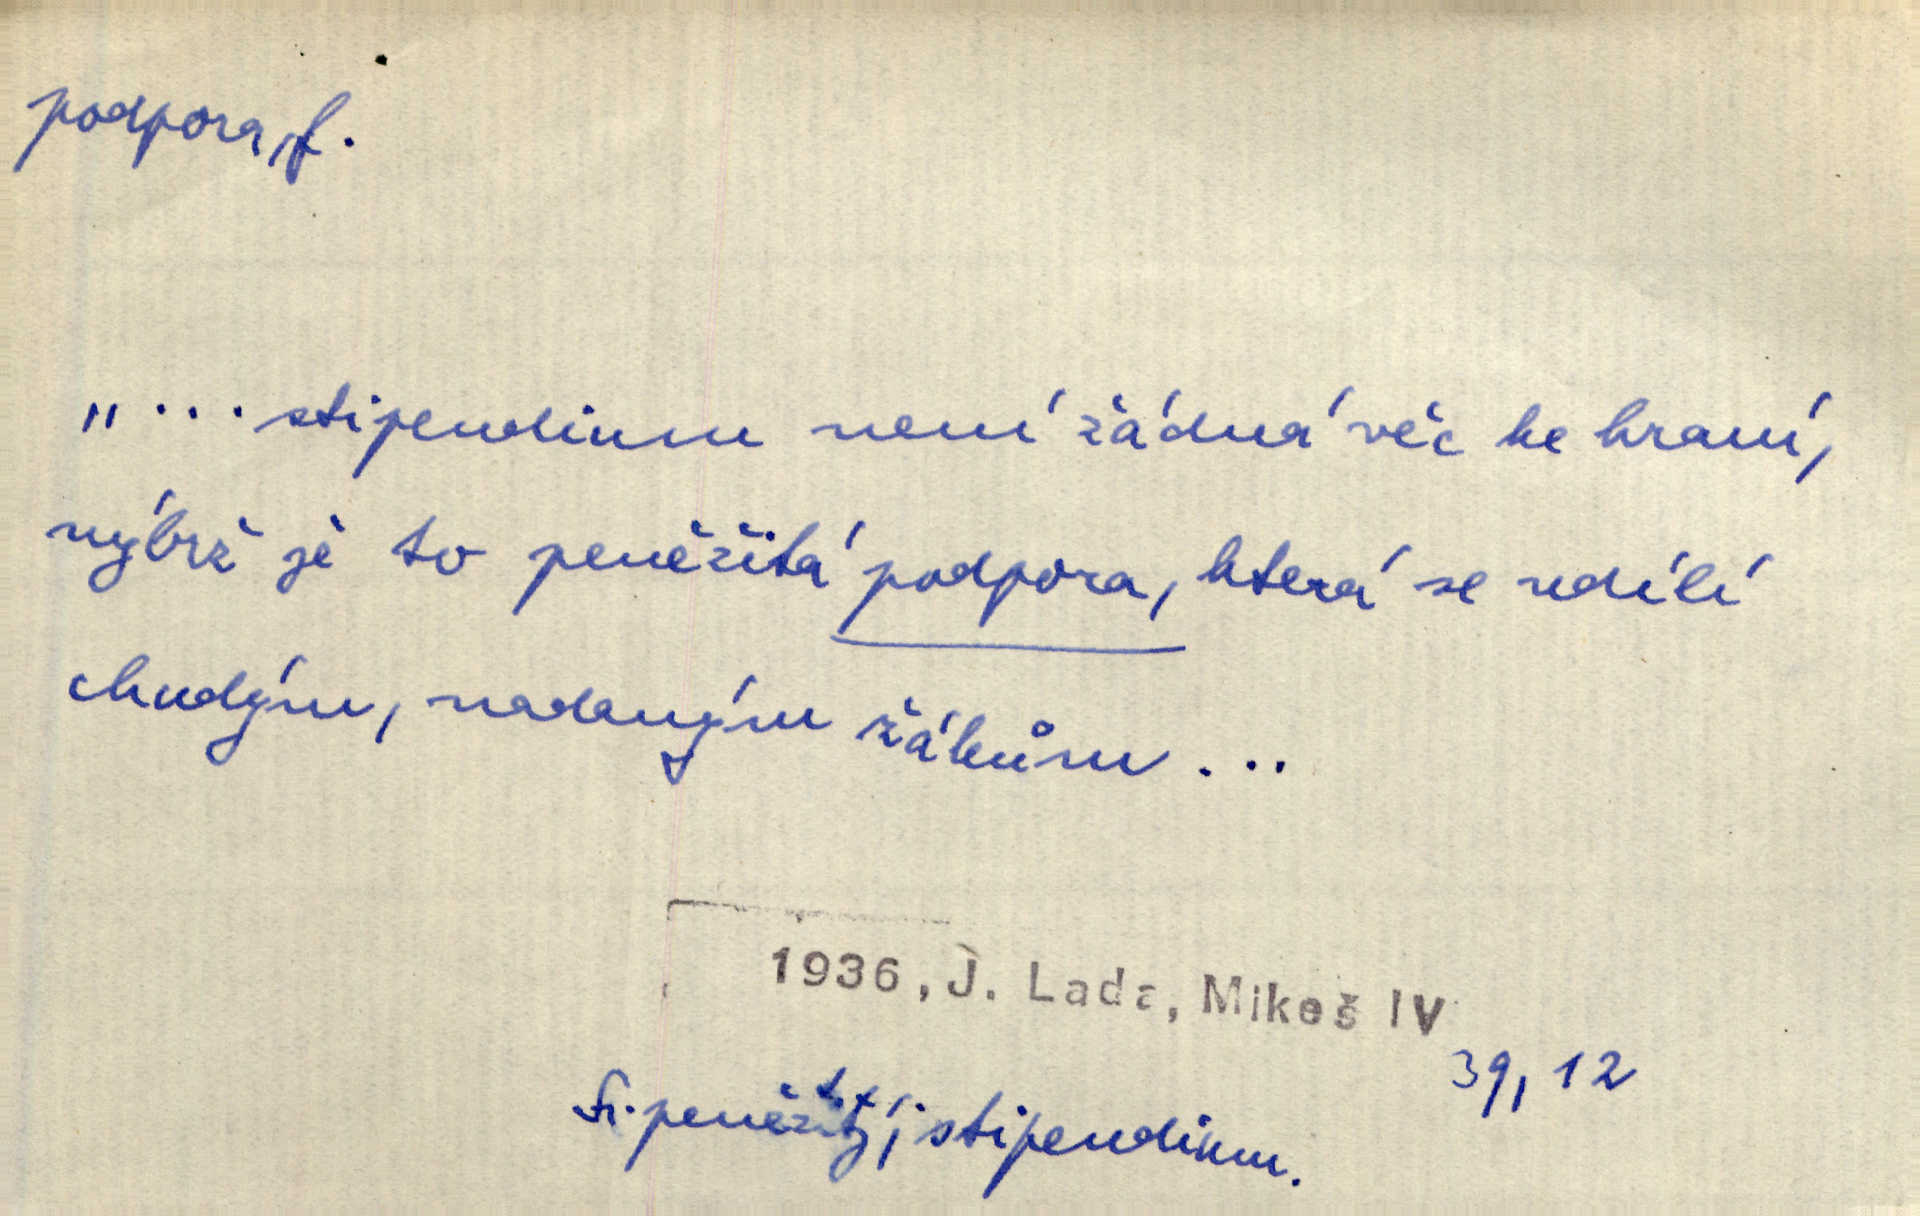 podpora, f.
„... stipendium není žádná věc ke hraní,
nýbrž je to peněžitá podpora, která se udílí
chudým, nadaným žákům ...
1936, J. Lada, Mikeš IV
39, 12
peněžitý; stipendium.